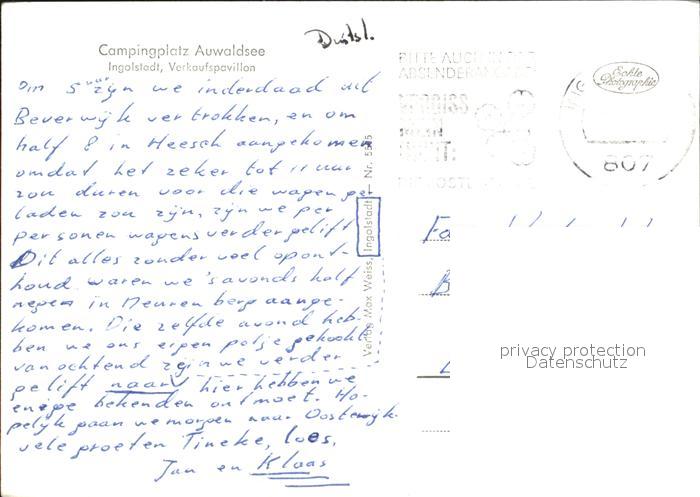 Duitsl.
Campingplatz Auwaldsee
Ingolstadt, Verkaufspavillon
Om 5 uur zijn we inderdaad uit
Beverwijk vertrokken, en om
half 8 in Heesch aangekomen
omdat het zeker tot 11 uur
zou duren voor die wagen ge-
laden zou zijn, zijn we per
personenwagens verder gelift
Dit alles zonder veel opont-
houd waren we 's avonds half
negen in Neurenberg aange-
komen. Die zelfde avond heb-
ben we ons eigen potje gekookt
vanochtend zijn we verder
gelift naar hier hebben we
enige bekenden ontmoet. Ho-
pelijk gaan we morgen naar Oostenrijk.
vele groeten Tineke, loes,
Jan en Klaas
Verlag Max Weiss, Ingolstadt — Nr. 5535
BITTE AUCH
ABSENDERANGABE
Echte Photographie
807
Fa
B
privacy protection
Datenschutz